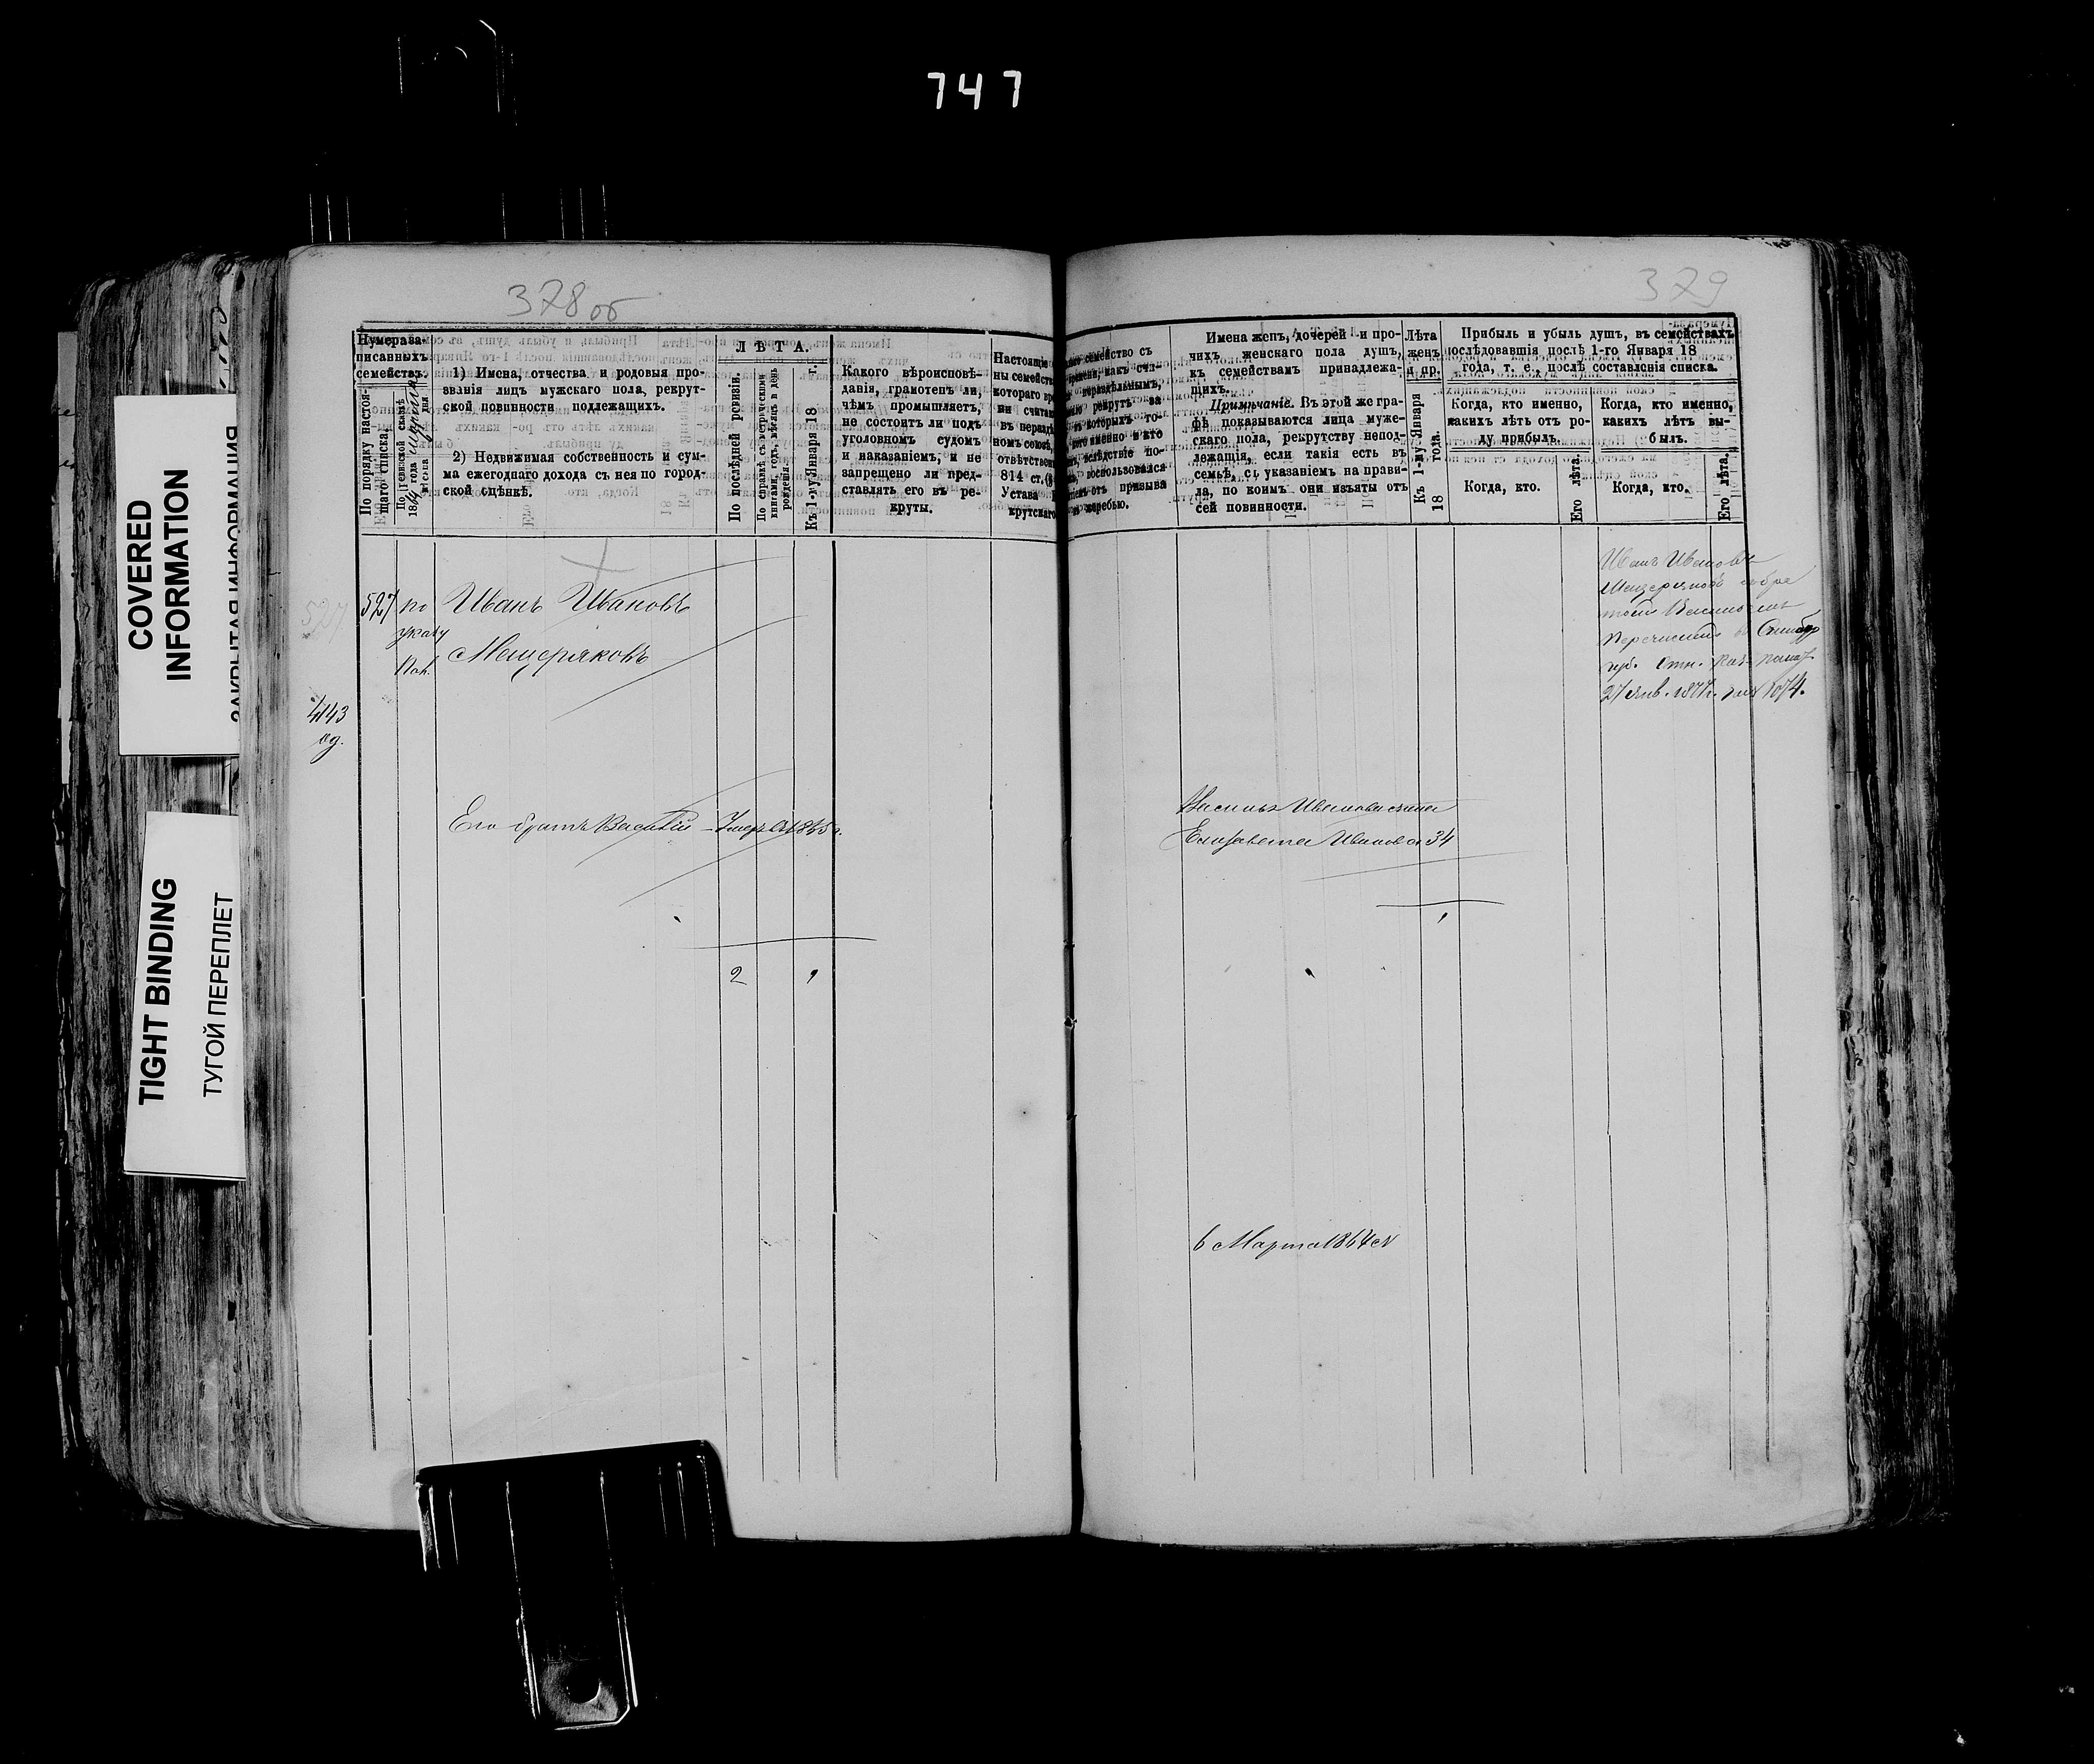 747
COVERED
INFORMATION
ЗАКРЫТАЯ ИНФОРМАЦИЯ
TIGHT BINDING
ТУГОЙ ПЕРЕПЛЕТ
378 об
Нумера за-
писанныхъ
семействъ.
По порядку настоя-
щаго списка.
По ревизской сказкѣ
18 года
мѣсяца дня.
1) Имена, отчества и родовыя про-
званія лицъ мужскаго пола, рекрут-
ской повинности подлежащихъ.
2) Недвижимая собственность и сум-
ма ежегоднаго дохода съ нея по город-
ской оцѣнкѣ.
ЛѢТА.
По послѣдней ревизіи.
По справкѣ съ метрическими
книгами, годъ, мѣсяцъ и день
рожденія.
Къ 1-му Января 18 г.
Какого вѣроисповѣ-
данія, грамотенъ ли,
чѣмъ промышляетъ,
не состоитъ ли подъ
уголовнымъ судомъ
и наказаніемъ, и не
запрещено ли пред-
ставлять его въ ре-
круты.
Настоящіе
ны семейств
котораго вр
ни считае
въ неразд
номъ союзѣ,
отвѣтствен
814 ст.
Устава
крутскаго
527 по Иванъ Ивановъ
указу
Пал. Мещеряковъ
4143
од.
Его братъ Василій – Умеръ 1845 г.
2 1
379
семейство съ
нераздѣльнымъ,
рекрутъ за
которыхъ то-
именно и кто
вслѣдствіе по-
воспользовался
отъ призыва
жеребью.
Имена женъ, дочерей и про-
чихъ женскаго пола душъ,
къ семействамъ принадлежа-
щихъ.
Примѣчаніе. Въ этой же гра-
фѣ показываются лица муже-
скаго пола, рекрутству непод-
лежащія, если такія есть въ
семьѣ, съ указаніемъ на прави-
ла, по коимъ они изъяты отъ
сей повинности.
Лѣта
женъ
и пр.
Къ 1-му Января
18 года.
Прибыль и убыль душъ, въ семействахъ
послѣдовавшія послѣ 1-го Января 18
года, т. е., послѣ составленія списка.
Когда, кто именно,
какихъ лѣтъ отъ ро-
ду прибылъ.
Когда, кто.
Его лѣта.
Когда, кто именно,
какихъ лѣтъ вы-
былъ.
Когда, кто.
Его лѣта.
Иванъ Ивановъ
Мещеряковъ съ бра
томъ Васильемъ
перечислены въ Симбир
губ. Отн. Каз. палат
27 янв. 1871 г. за № 1074.
Василья Иванова жена
Елизавета Иванова 34
1
6 Марта 1864 г.